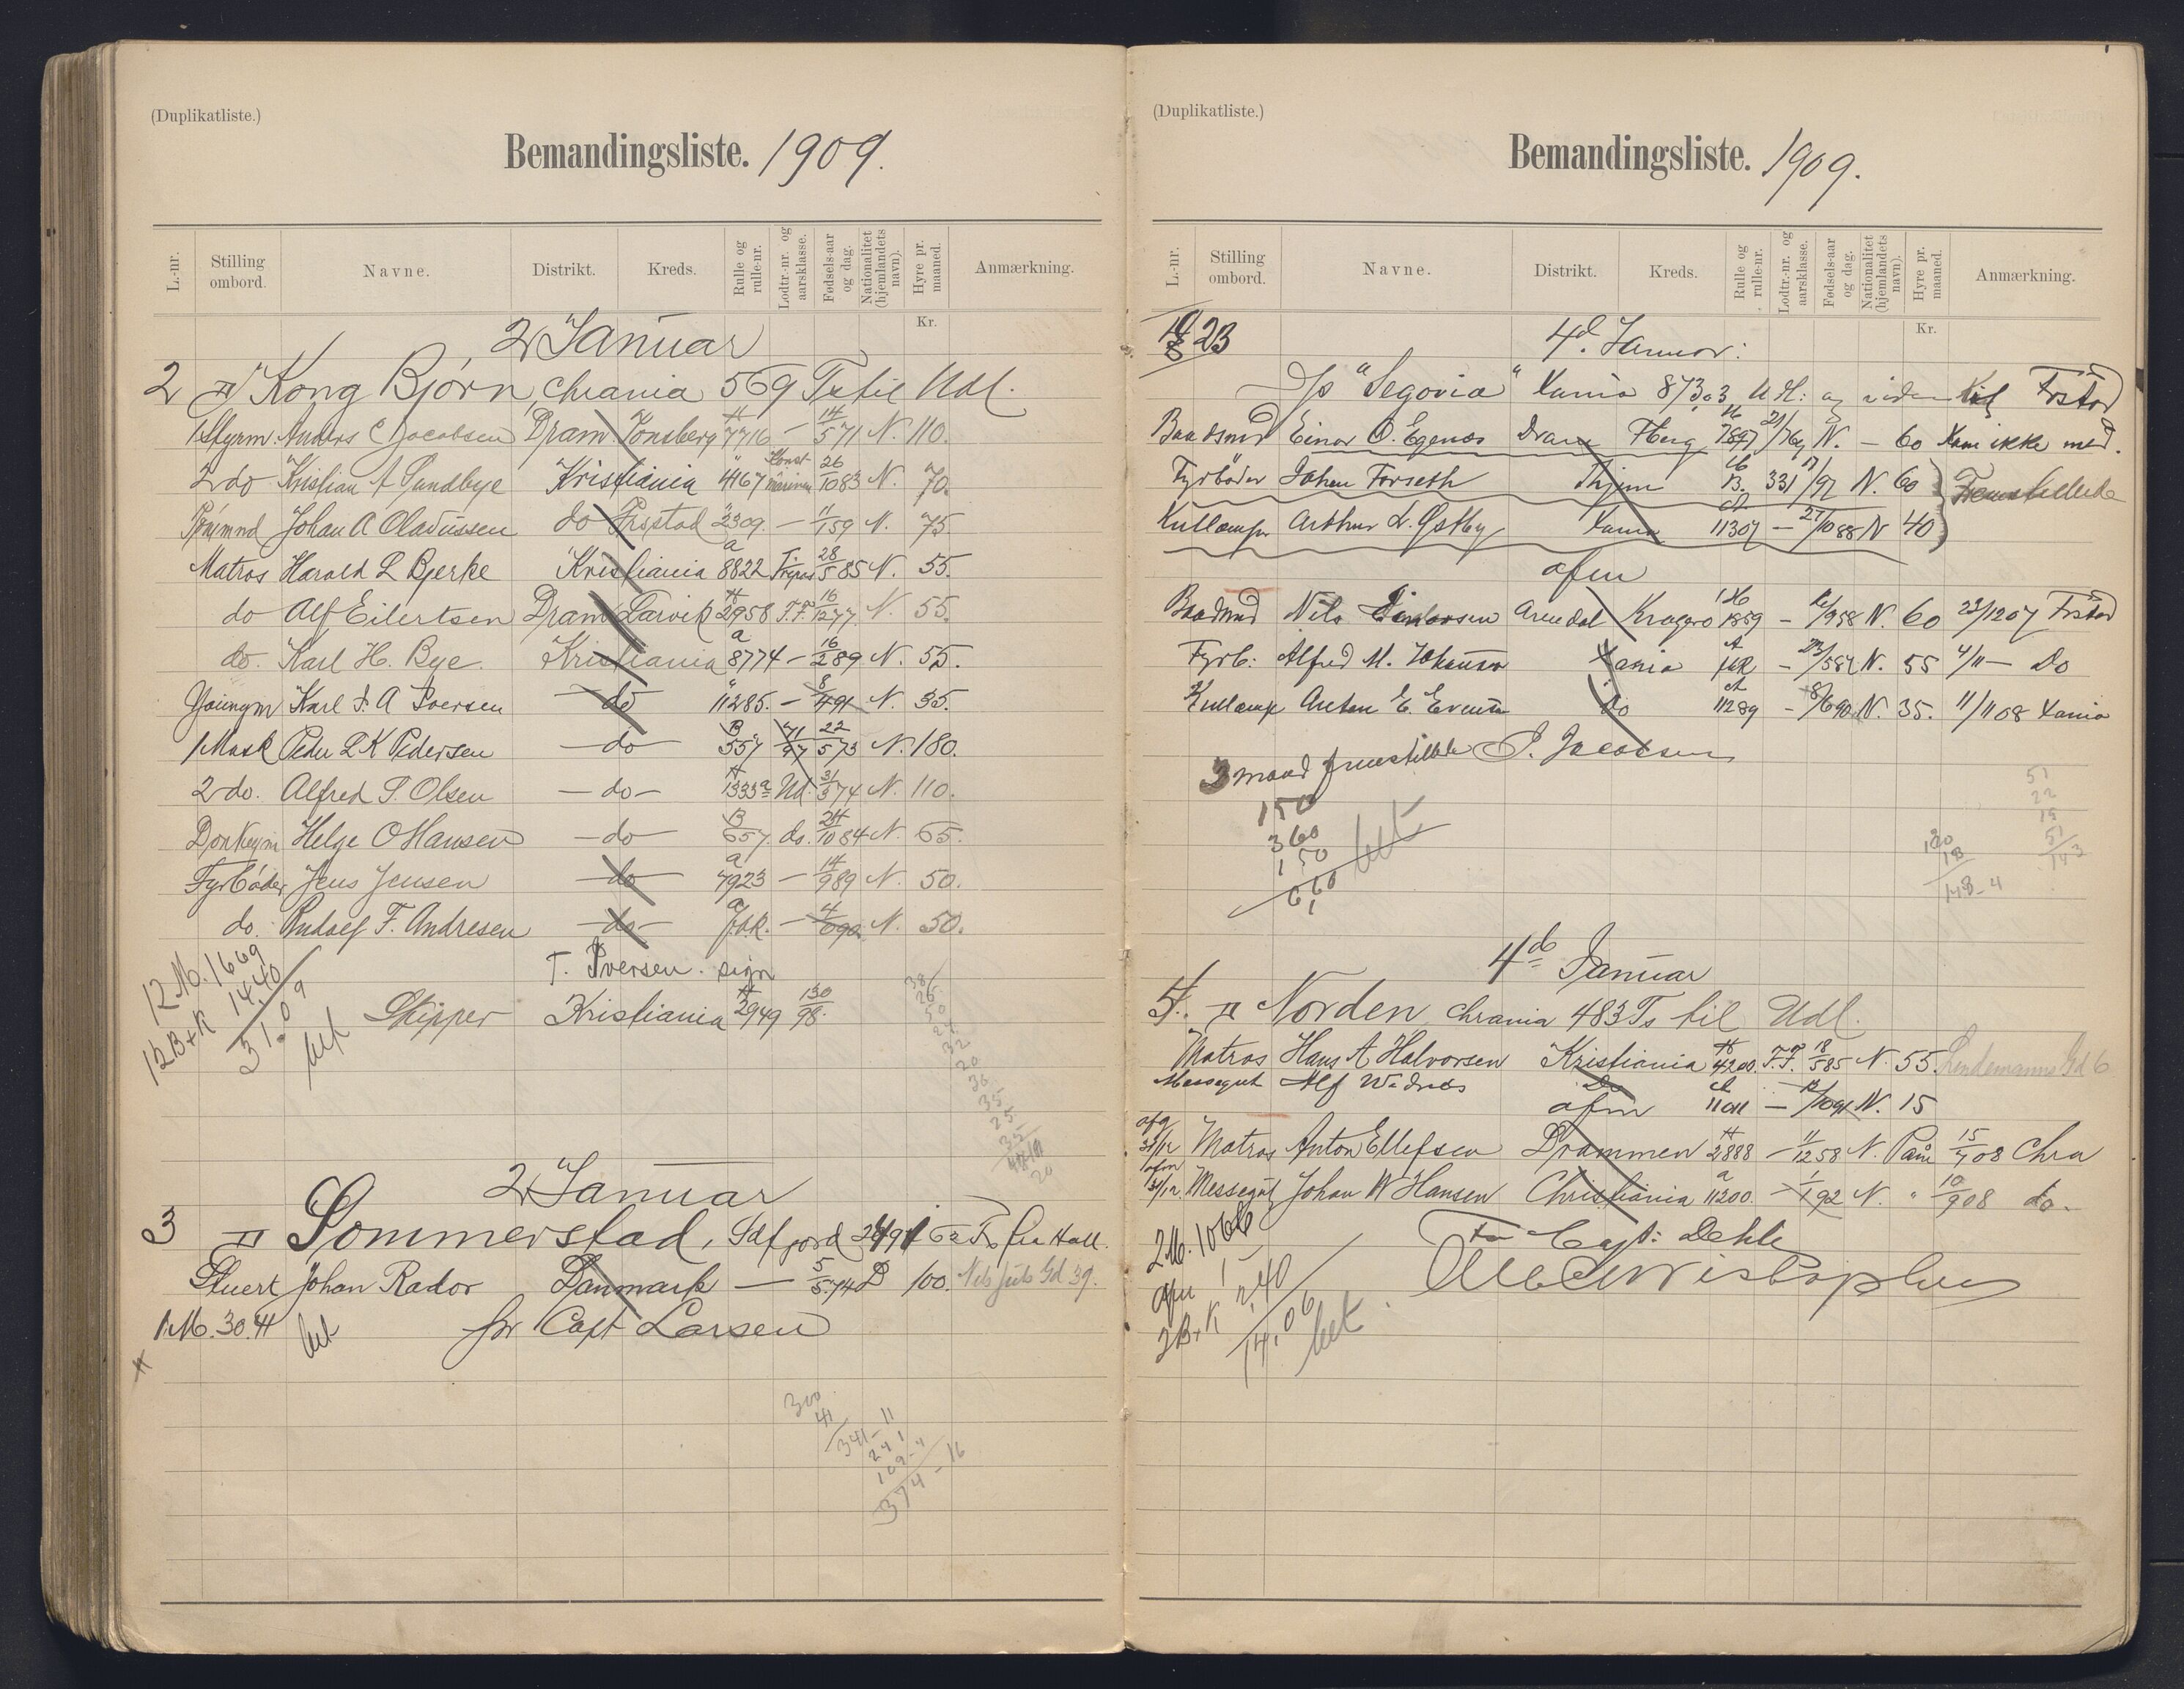 (Duplikatliste.)
Bemandingsliste. 1909.
L.-nr. Stilling ombord. Navne. Distrikt. Kreds. Rulle og rulle-nr. Lodtr.-nr. og aarsklasse. Fødsels-aar og dag. Nationalitet (hjemlandets navn). Hyre pr. maaned. Anmærkning.
Kr.
2 Januar
2 Kong Bjørn, Chrania 569 Ts til Udl.
1 Styrm Anders C Jacobsen Dram. Tønsberg 7716 — 14/5 71 N. 110.
2 do Kristian A Sundbye Kristiania 4167 26/10 83 N. 70.
Johan A Oladussen do Frstad 2309. — 11/1 59 N. 75.
Matros Harald L Bjerke Kristiania a 8822 28/5 85 N. 55.
do Alf Eilertsen Dram Larvik 2958 F.F. 16/12 77 N. 55.
do. Karl H. Bye. Kristiania a 8774 — 16/2 89 N. 55.
Youngm Karl F. A Iversen — do 11285. — 8/4 91 N. 35.
1 Mask Peder L K Pedersen — do — B 557 71/97 22/5 73 N. 180.
2 do. Alfred S. Olsen — do — 1333a Ud. 31/3 74 N. 110.
Donkeym Helge O Hansen — do — B 657. do. 24/10 84 N. 65.
Fyrbøder Jens Jensen — do — a 7923 — 14/9 89 N. 50.
do. Rudolf F. Andresen — do — a — 4/6 90 N. 50.
T. Iversen. sign
12 M. 16 69
12 B+K 14.40
31.09
bet
Skipper Kristiania 2949 130/98.
38
26
50
32
20
36
35
25
35
20
2 Januar
3 Sommerstad, Sdfjord
Stuert Johan Rador Danmark — 5/5 74 D 100. Nils Juls Gd 39.
1 M. 30. H bet for Capt Larsen
300
41
341 - 11
241
109 - 4
374 - 16
(Duplikatliste.)
Bemandingsliste. 1909.
L.-nr. Stilling ombord. Navne. Distrikt. Kreds. Rulle og rulle-nr. Lodtr.-nr. og aarsklasse. Fødsels-aar og dag. Nationalitet (hjemlandets navn). Hyre pr. maaned. Anmærkning.
Kr.
23 4d. Januar:
D/s "Segovia" Xania 873,03 Frstad
Baadsmd Einar O. Egenæs Dram Tberg 7897 N. — 60 Kom ikke med.
Fyrbøder Johan Forseth Thjem B. 331 17/97 N. 60 } Fremstillede
Kullemper Arthur L. Østby Xania 11307 — 27/10 88 N 40 }
afm
Baadsmd Nils Arendal Kragerø 1859 — N. 60 23/12 07 Frstad
Fyrb: Alfred M. Johansen Xania — N. 55 4/11 — Do
Kullemp Anton E. Evensen Do 11289 — 8/6 90 N. 35. 11/11 08 Xania
3 mand fremstillede S. Jacobsen
150
360
150
6,60
bet
51
22
19
51
143
130
18
148 - 4
4de Januar
5. Norden Chrania 483 Ts til Udl.
Matros Hans A Halvorsen Kristiania 4200. F.F. 18/5 85 N. 55. Lindemanns Gd 6
Messegut Alf Widnes Do 11011 — N. 15
afm
afg 31/12 Matros Anton Ellefsen Drammen 2888 — 11/12 58 N. Paam 15/7 08 Chra
afm 31/12 Messegut Johan W Hansen Christiania a 11200. — 1/1 92 N. " 10/9 08 do.
2 M. 10 66
afm 1 —
2 B+K 2,40
14,06
bet
For Capt: Dehli